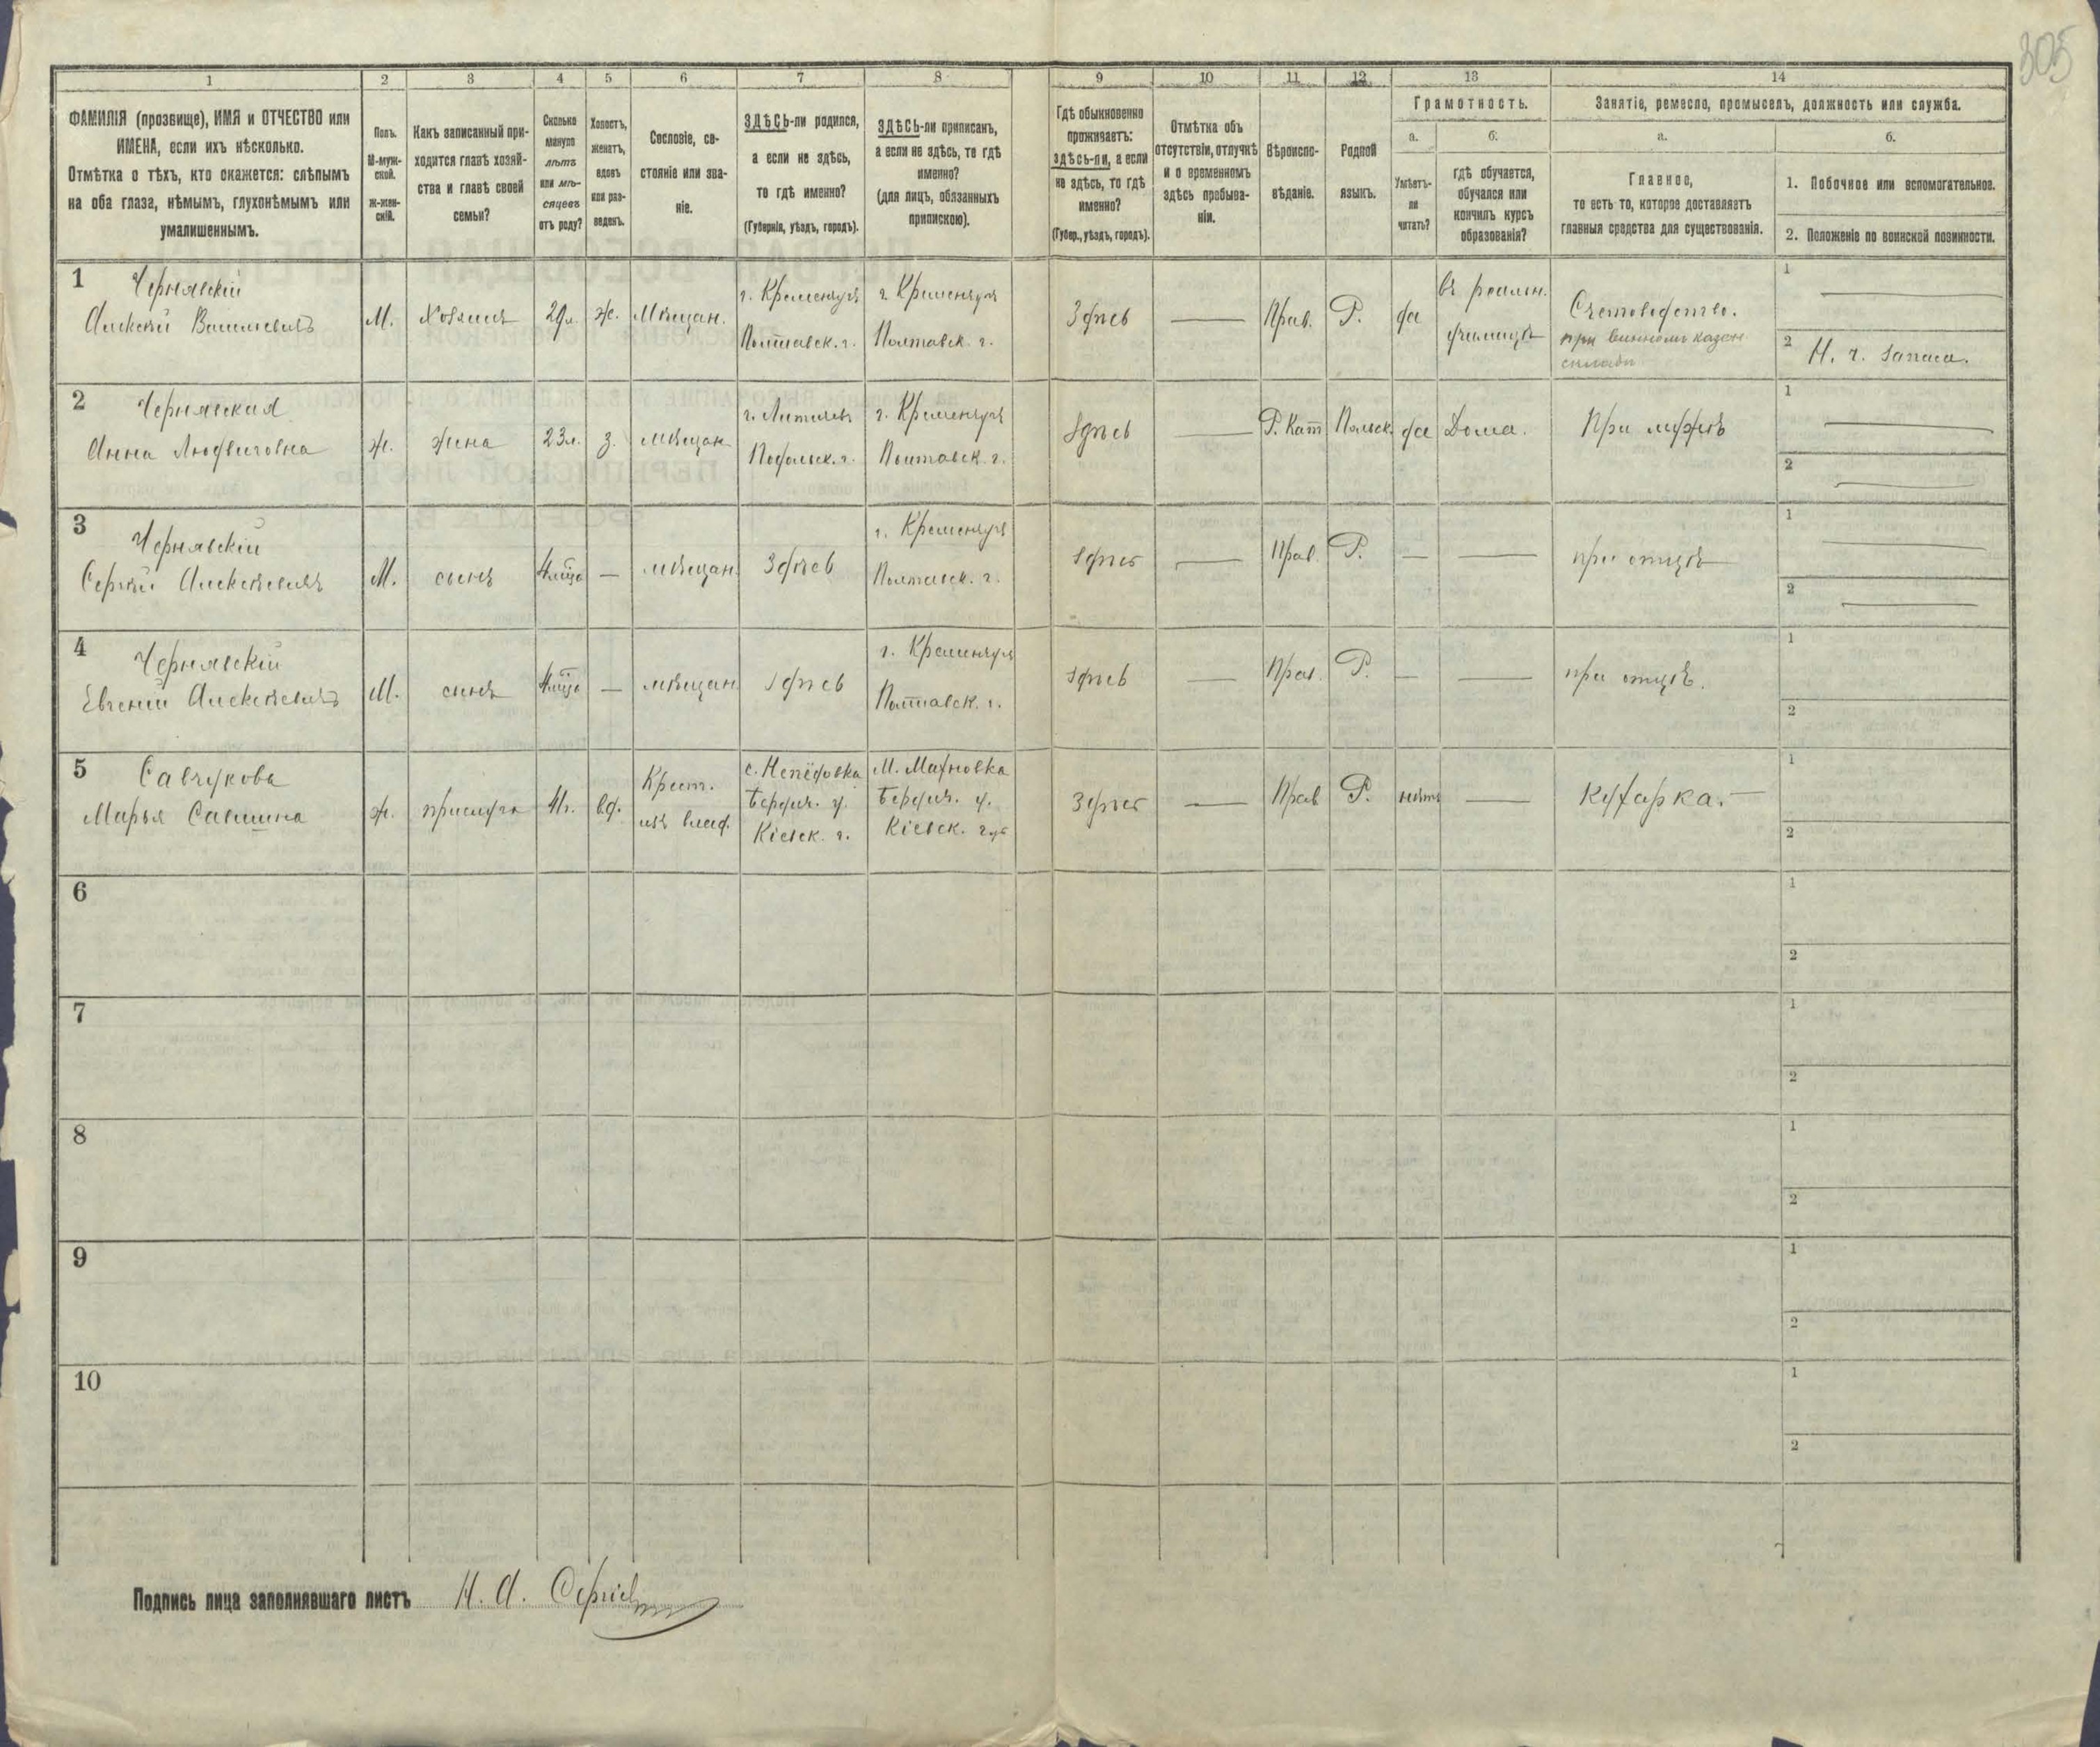 305
1
2
3
4
5
6
7
8
9
10
11
12
13
14
ФАМИЛІЯ (прозвище), ИМЯ и ОТЧЕСТВО или
ИМЕНА, если ихъ нѣсколько.
Отмѣтка о тѣхъ, кто окажется: слѣпымъ
на оба глаза, нѣмымъ, глухонѣмымъ или
умалишеннымъ.
Полъ.
М-муж-
ской.
Ж-жен-
скій.
Какъ записанный при-
ходится главѣ хозяй-
ства и главѣ своей
семьи?
Сколько
минуло
лѣтъ
или мѣ-
сяцевъ
отъ роду?
Холостъ,
женатъ,
вдовъ
или раз-
веденъ.
Сословіе, со-
стояніе или зва-
ніе.
ЗДѢСЬ-ли родился,
а если не здѣсь,
то гдѣ именно?
(Губернія, уѣздъ, городъ).
ЗДѢСЬ-ли приписанъ,
а если не здѣсь, то гдѣ
именно?
(для лицъ, обязанныхъ
припискою).
Гдѣ обыкновенно
проживаетъ:
здѣсь-ли, а если
не здѣсь, то гдѣ
именно?
(Губер., уѣздъ, городъ).
Отмѣтка объ
отсутствіи, отлучкѣ
и о временномъ
здѣсь пребыва-
ніи.
Вѣроиспо-
вѣданіе.
Родной
языкъ.
Грамотность.
а.
Умѣетъ-
ли
читать?
б.
гдѣ обучается,
обучался или
кончилъ курсъ
образованія?
Занятіе, ремесло, промыселъ, должность или служба.
а.
Главное,
то есть то, которое доставляетъ
главныя средства для существованія.
б.
1. Побочное или вспомогательное.
2. Положеніе по воинской повинности.
1
Чернявскій
Алексѣй Васильевичъ
М.
Хозяинъ
29л.
ж.
Мѣщан.
г. Кременчугъ
Полтавск. г.
г. Кременчугъ
Полтавск. г.
Здѣсь
—
Прав.
Р.
да
въ реальн.
училищѣ
Счетоводство.
при винномъ казен.
складѣ
1 —
2 Н. ч. запаса.
2
Чернявская
Анна Людвиговна
ж.
жена
23л.
з.
мѣщан.
г. Литинъ
Подольск. г.
г. Кременчугъ
Полтавск. г.
Здѣсь
—
Р. Кат
Польск.
да
Дома.
При мужѣ
1 —
2 —
3
Чернявскій
Сергѣй Алексѣевичъ
М.
сынъ
—
мѣщан.
Здѣсь
г. Кременчугъ
Полтавск. г.
Здѣсь
—
Прав.
Р.
—
—
при отцѣ
1 —
2 —
4
Чернявскій
Евгеній Алексѣевичъ
М.
сынъ
—
мѣщан.
Здѣсь
г. Кременчугъ
Полтавск. г.
Здѣсь
—
Прав.
Р.
—
—
при отцѣ.
1
2
5
Савчукова
Марья Савишна
ж.
прислуга
41г.
вд.
Крест.
изъ влад.
с. Непедовка
Бердич. у.
Кіевск. г.
М. Махновка
Бердич. у.
Кіевск. губ
Здѣсь
—
Прав
Р.
нѣтъ
—
Кухарка. —
1
2
6
1
2
7
1
2
8
1
2
9
1
2
10
1
2
Подпись лица заполнявшаго листъ Н. А.